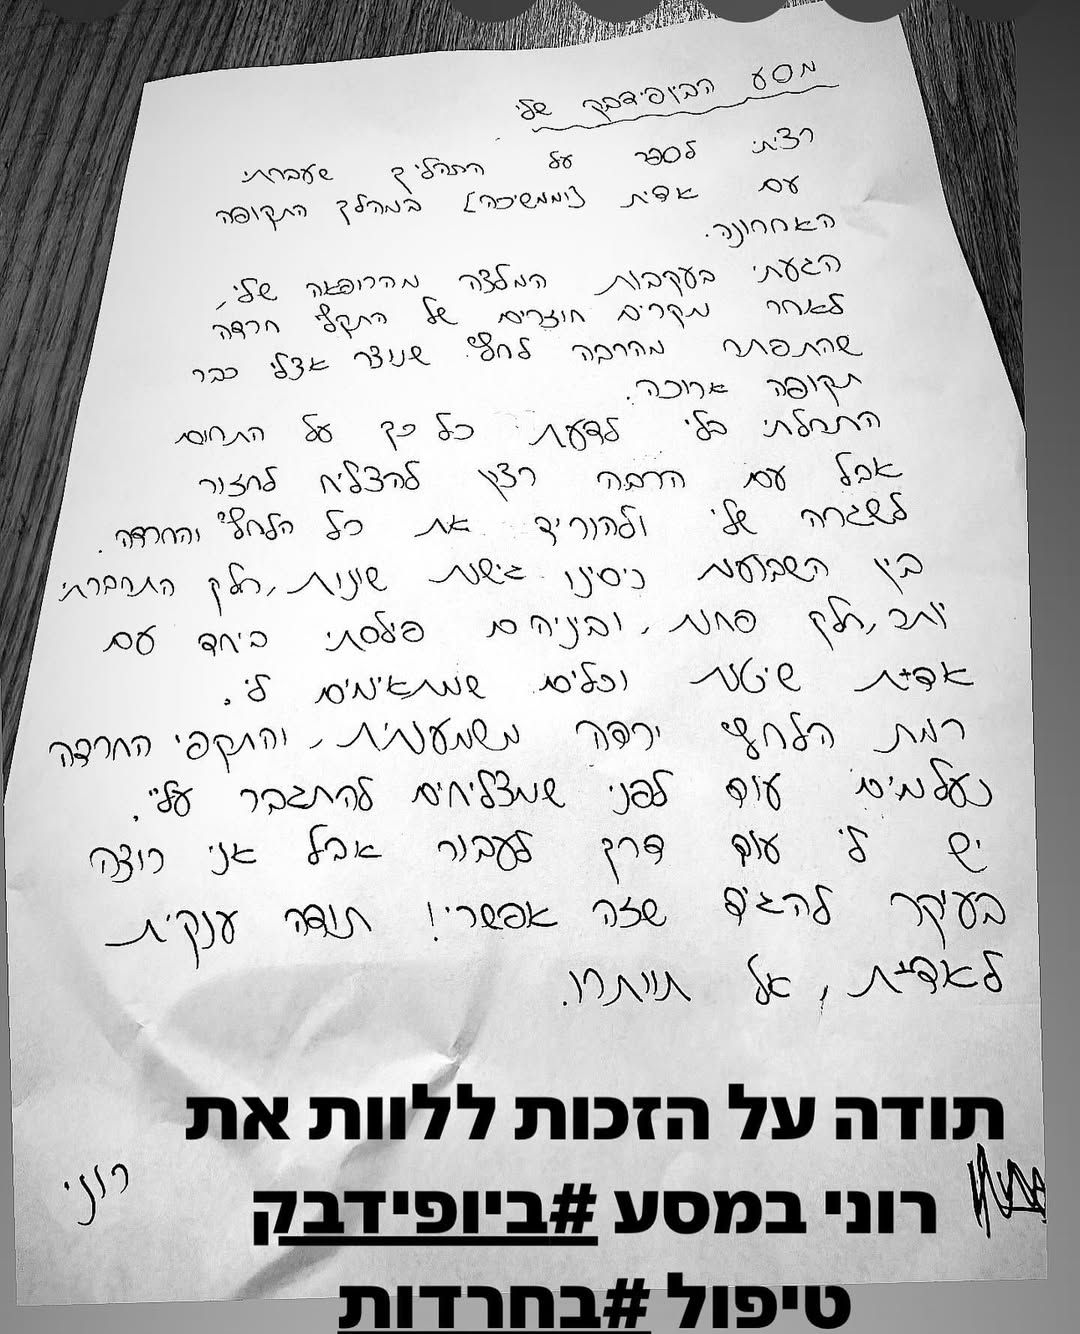 מסע הביופידבק שלי
רציתי לספר על התהליך שעברתי
עם אדית (וממשיכה) במהלך התקופה
האחרונה.
הגעתי בעקבות המלצה מהרופאה שלי,
לאחר מקרים חוזרים של התקף חרדה
שהתפתח מהרבה לחץ שנוצר אצלי כבר
תקופה ארוכה.
התחלתי בלי לדעת כל כך על התחום
אבל עם הרבה רצון להצליח לחזור
לשגרה שלי ולהוריד את כל הלחץ והחרדה.
בין השבועות ניסינו גישות שונות, חלק התחברתי
יותר, חלק פחות, וביניהם פילסתי ביחד עם
אדית שיטות וכלים שמתאימים לי.
רמת הלחץ ירדה משמעותית, והתקפי החרדה
נעלמים עוד לפני שמצליחים להתגבר עליי.
יש לי עוד דרך לעבור אבל אני רוצה
בעיקר להגיד שזה אפשרי! תודה ענקית
לאדית, אל תוותרו.
רוני
תודה על הזכות ללוות את
רוני במסע #ביופידבק
טיפול #בחרדות